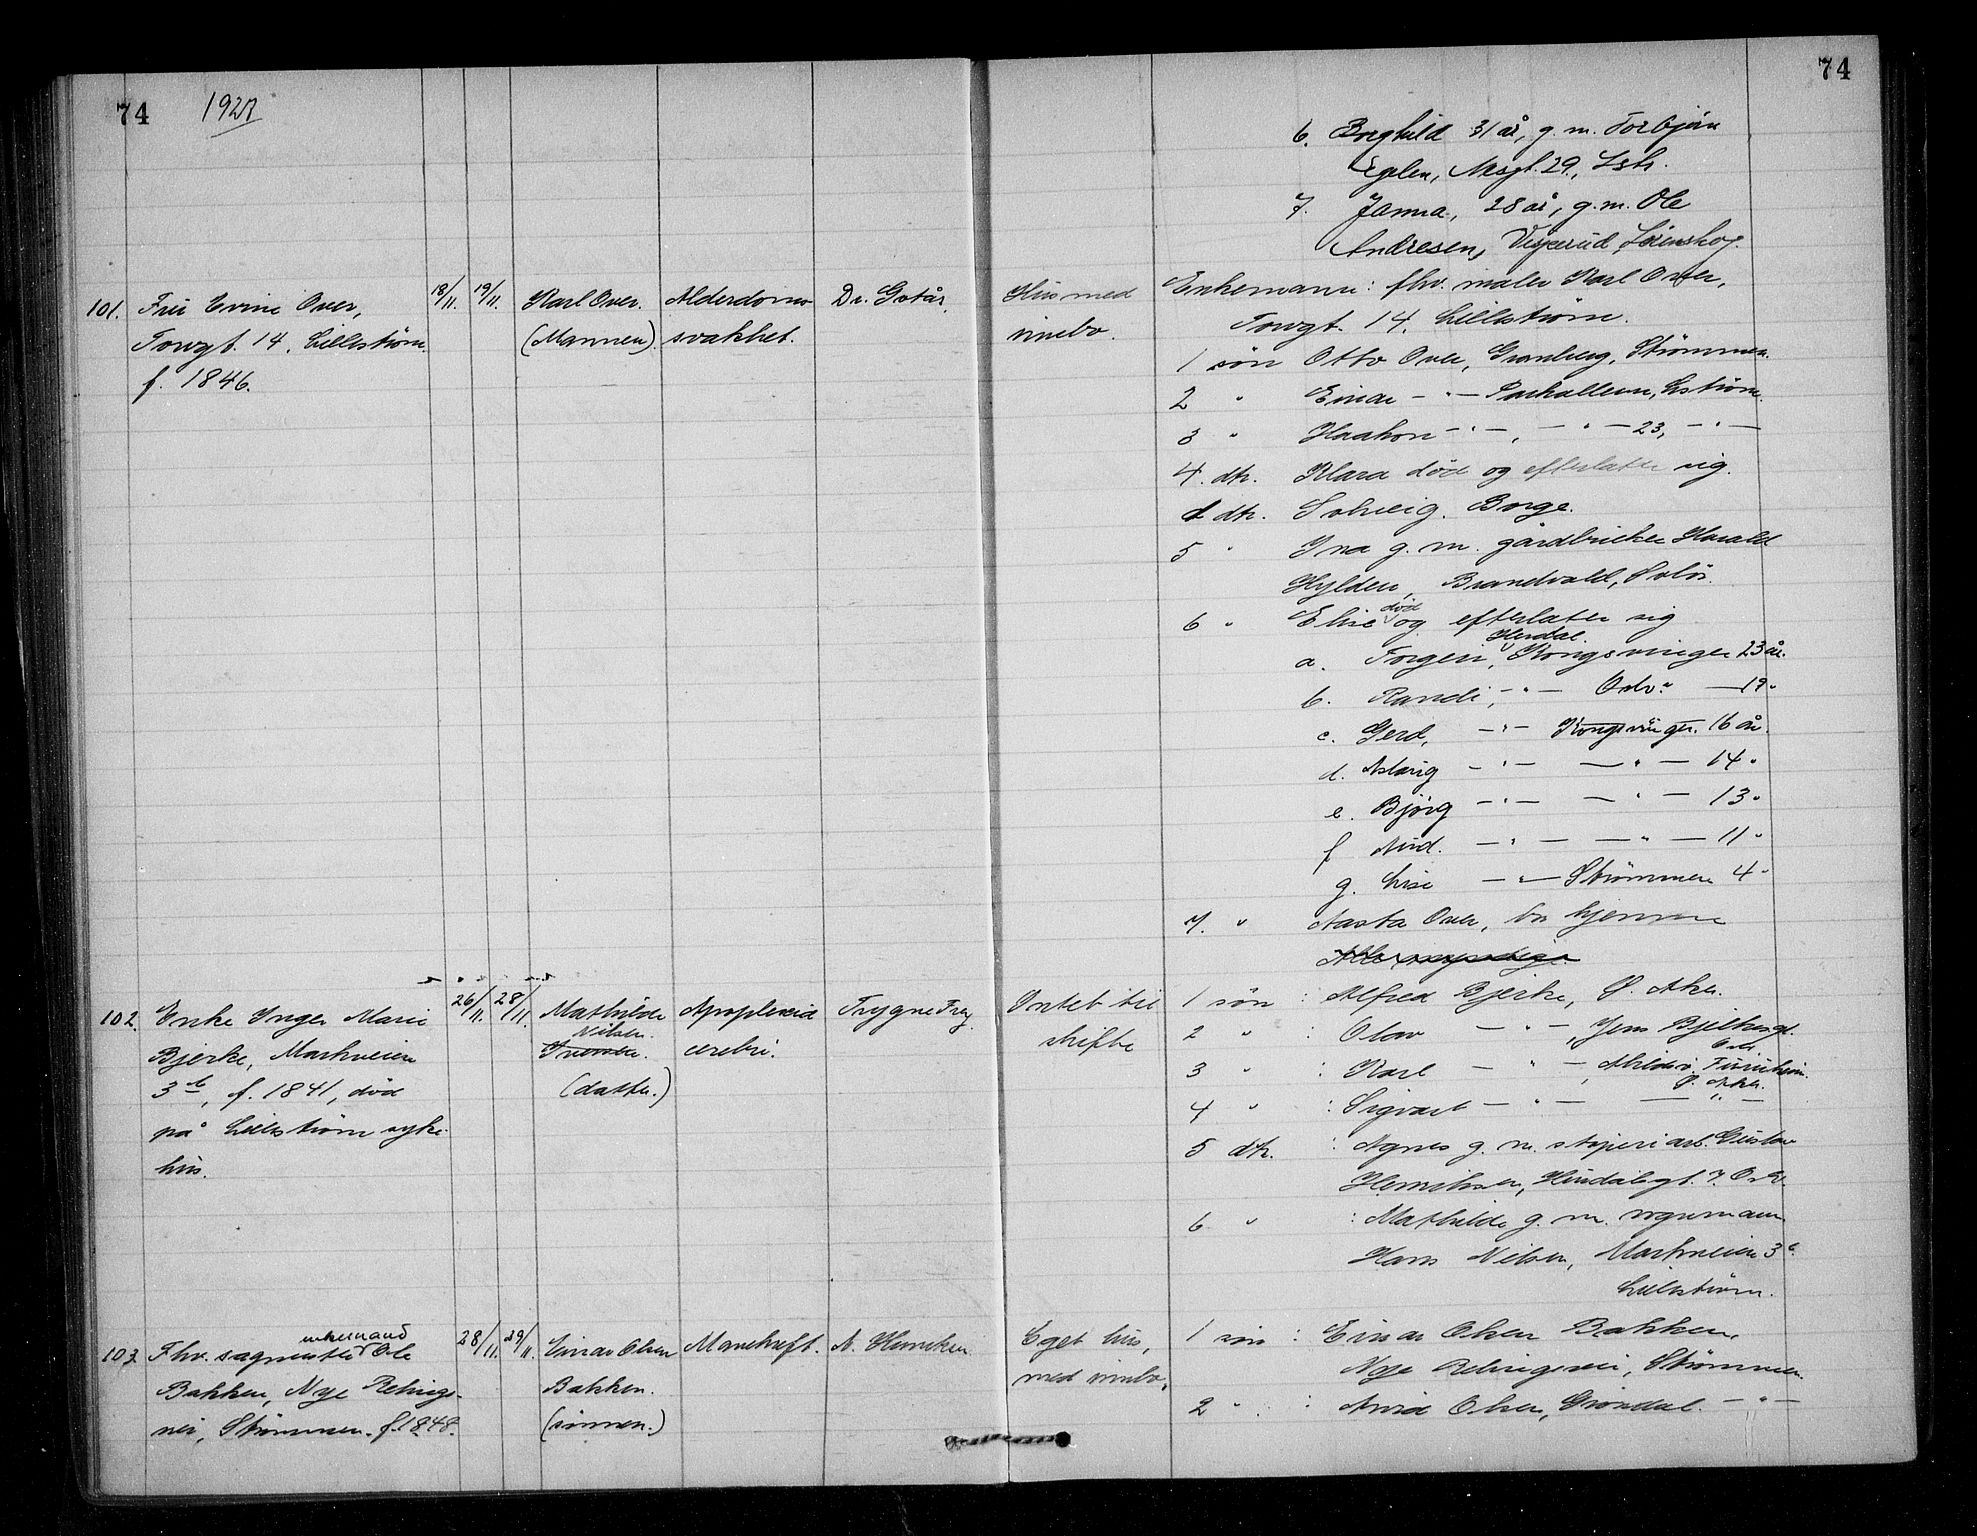 74 1927
74
6. Borghild 31 år, g. m. Torbjørn
Egelen, Nesgt. 29, Lstr.
7. Janna, 28 år, g. m. Ole
Andresen, Visperud, Lørenskog.
101. Fru Evine Over,
Torvgt. 14, Lillestrøm.
f. 1846.
18/11. 19/11.
Karl Over.
(Mannen).
Alderdoms
svakhet.
Dr. Gotås.
Hus med
innbo.
Enkemann: fhv. maler Karl Over,
Torvgt. 14, Lillestrøm.
1 søn Otto Over, Granberg, Strømmen.
2 " Einar - " - Parkalleen, Lstrøm.
3 " Haakon - " -, - " - 23, - " -
4. dtr. Klara død og efterlater sig.
1 dtr. Solveig Borge.
5 " Ina g. m. gårdbruker Harald
Hylden, Brandvald, Solør.
6 " Elise død og efterlater sig
a. Torgeir, Herdal, Kongsvinger 23 år.
b. Randi, - " - Oslo. - 19 "
c. Gerd, - " - Kongsvinger. 16 år.
d. Aslaug - " - - " - 14 "
e. Bjørg - " - - " - 13 "
f Aud. - " - - " - 11 "
g. Lise - " - Strømmen 4 "
7. " Aasta Over, bor hjemme
Alle myndige.
102. Enke Inger Marie
Bjerke, Markveien
3 b, f. 1841, død
på Lillestrøm syke-
hus.
26/11. 28/11.
Mathilde
Nilsen
Iversen.
(datter.)
Apoplexia
cerebri.
Trygve Frey
Intet til
skifte
1 søn : Alfred Bjerke, Ø. Aker.
2 " : Olav - " -, Jens Bjelkesgt.
Oslo
3 " : Karl - " -, Furuheim
Ø. Aker.
4 " : Sigvart - " - - " -
5 dtr. : Agnes g. m. støperiarb. Gustav
Henriksen, 7. Oslo.
6 " : Mathilde g. m. vognmann
Hans Nilsen, Markveien 3 b.
Lillestrøm.
103. Fhv. sagmester enkemand Ole
Bakken, Nye Rælings-
vei, Strømmen. f. 1848.
28/11. 29/11.
Einar Olsen
Bakken.
(sønnen.)
Mavekreft.
Eget hus,
med innbo.
1 søn : Einar Olsen Bakken,
Nye Rælingsvei, Strømmen.
2 " : Arvid Olsen, Grøndal. - " -